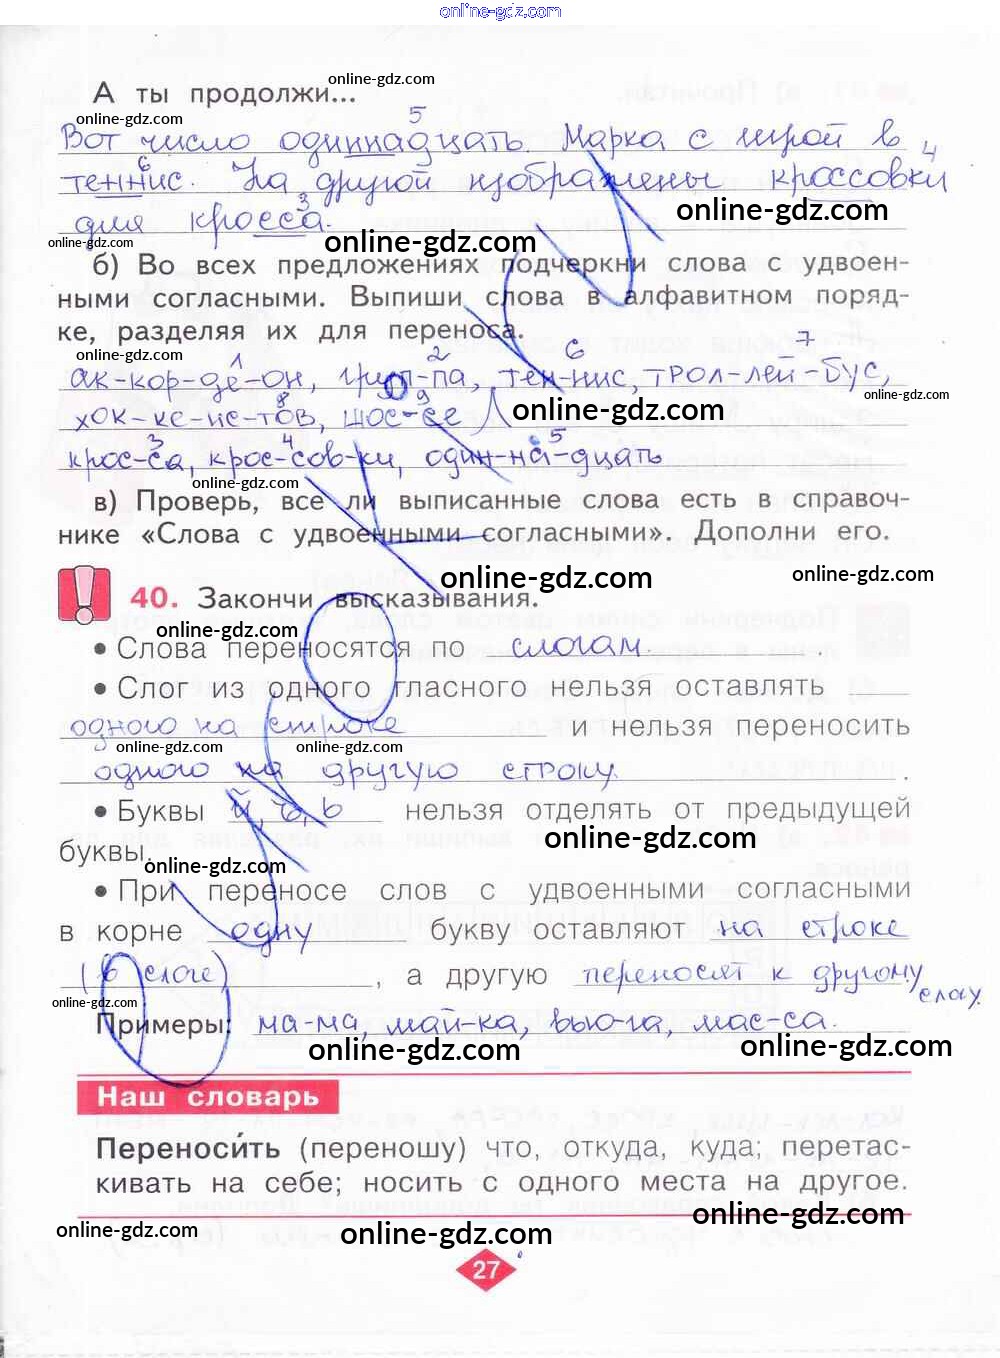 online-gdz.com
online-gdz.com
А ты продолжи...
5
Вот число одиннадцать. Марка с игрой в
6 4
теннис. На другой изображены кроссовки
online-gdz.com
3
для кросса.
online-gdz.com online-gdz.com
б) Во всех предложениях подчеркни слова с удвоен-
ными согласными. Выпиши слова в алфавитном поряд-
ке, разделяя их для переноса.
online-gdz.com
1 2 6 7
ак-кор-де-он, груп-па, тен-нис, трол-лей-бус,
online-gdz.com
8 9
хок-ке-ис-тов, шос-се
online-gdz.com
3 4 5
крос-са, крос-сов-ки, один-на-дцать
online-gdz.com
в) Проверь, все ли выписанные слова есть в справоч-
нике «Слова с удвоенными согласными». Дополни его.
online-gdz.com online-gdz.com
40. Закончи высказывания.
online-gdz.com
• Слова переносятся по слогам.
• Слог из одного гласного нельзя оставлять
одного на строке и нельзя переносить
online-gdz.com online-gdz.com
одного на другую строку.
• Буквы й, ъ, ь нельзя отделять от предыдущей
буквы.
online-gdz.com online-gdz.com
• При переносе слов с удвоенными согласными
в корне одну букву оставляют на строке
(в слоге), а другую переносят к другому
слогу.
online-gdz.com
Примеры: ма-ма, май-ка, вью-га, мас-са.
online-gdz.com online-gdz.com
Наш словарь
Переноси́ть (переношу) что, откуда, куда; перетас-
кивать на себе; носить с одного места на другое.
online-gdz.com online-gdz.com online-gdz.com
27